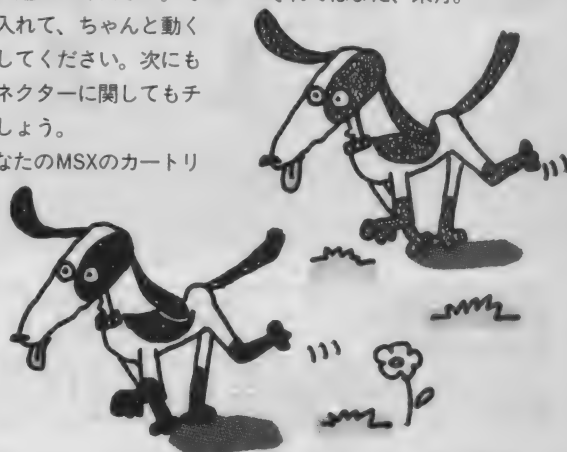 入れて、ちゃんと動く
してください。次にも
ネクターに関してもチ
しょう。
なたのMSXのカートリ